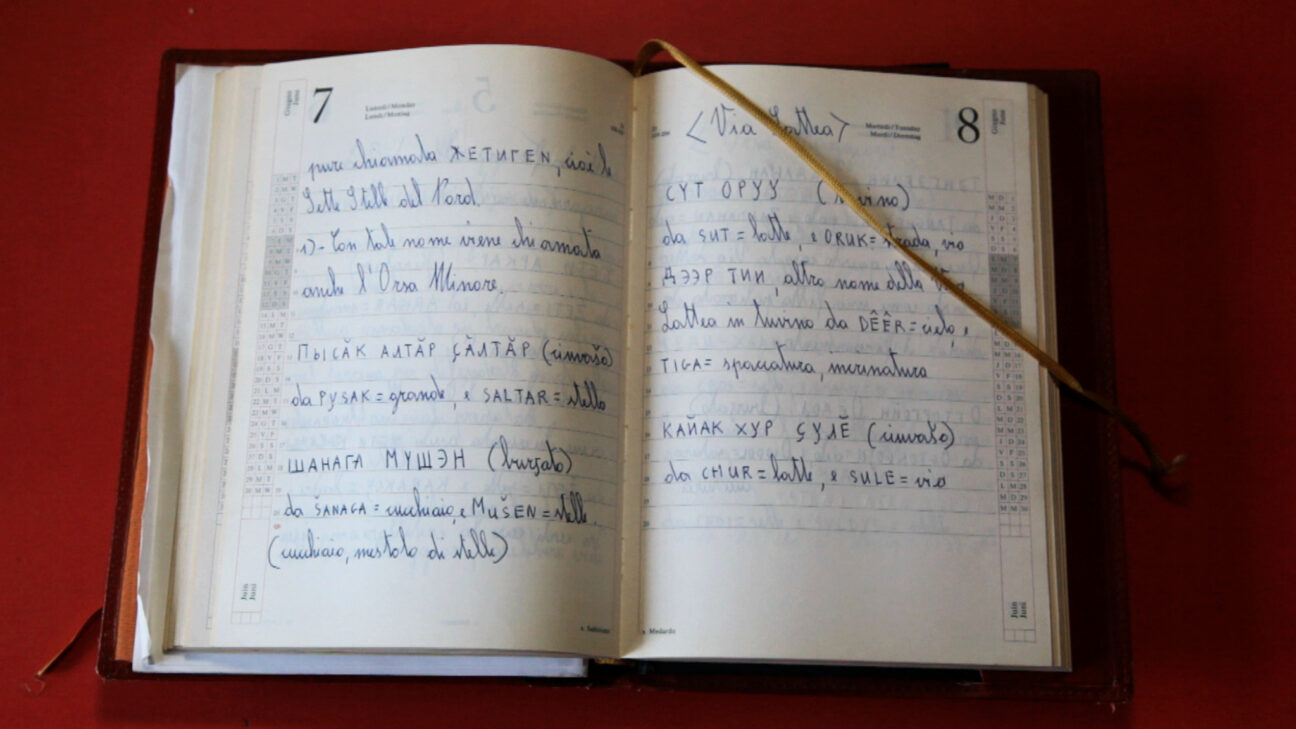 7
Lunedì/Monday
Lundi/Montag
Giugno
Juni
pure chiamata ЖЕТИГЕN, cioè le
Sette Stelle del Nord.
1)- Con tale nome viene chiamata
anche l'Orsa Minore.
ПЫСĂК АЛТĂР ÇĂЛТĂР (ciuvašo)
da PYSAK = grande, e SALTAR = stella
ШАНАГА МҮШЭН (burjato)
da ŠANAGA = cucchiaio, e MUŠEN = stelle.
(cucchiaio, mestolo di stelle)
Juin
Juni
s. Sabiniano
<Via Lattea>
Martedì/Tuesday
Mardi/Dienstag
8
Giugno
Juni
СҮТ ОРУУ (tuvino)
da SUT = latte, e ORUK = strada, via
ДЭЭР ТИИ, altro nome della Via
Lattea in tuvino da DÊÊR = cielo, e
TIGA = spaccatura, incrinatura
КАЙАК ХУР ÇУЛĔ (ciuvašo)
da CHUR = latte, e SULE = via
Juin
Juni
s. Medardo